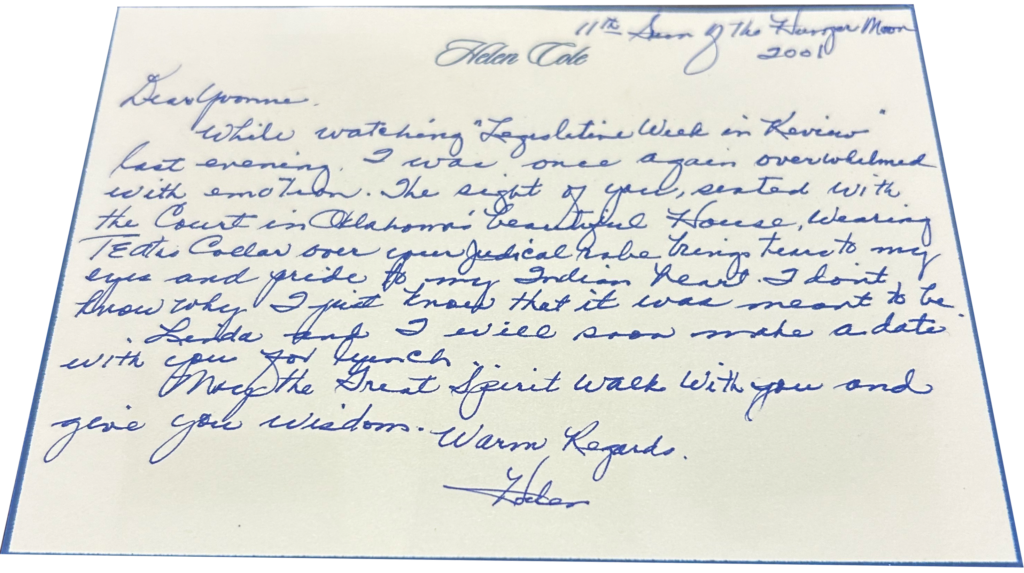 11th Sun of the Hunger Moon
2001
Helen Cole
Dear Yvonne,
While watching "Legislative Week in Review"
last evening, I was once again overwhelmed
with emotion. The sight of you, seated with
the Court in Oklahoma's beautiful House, wearing
TEdtas Collar over your judical robe brings tears to my
eyes and pride to my Indian heart. I don't
know why I just know that it was meant to be.
Linda and I will soon make a date
with you for lunch.
May the Great Spirit walk with you and
give you wisdom. Warm Regards.
Helen